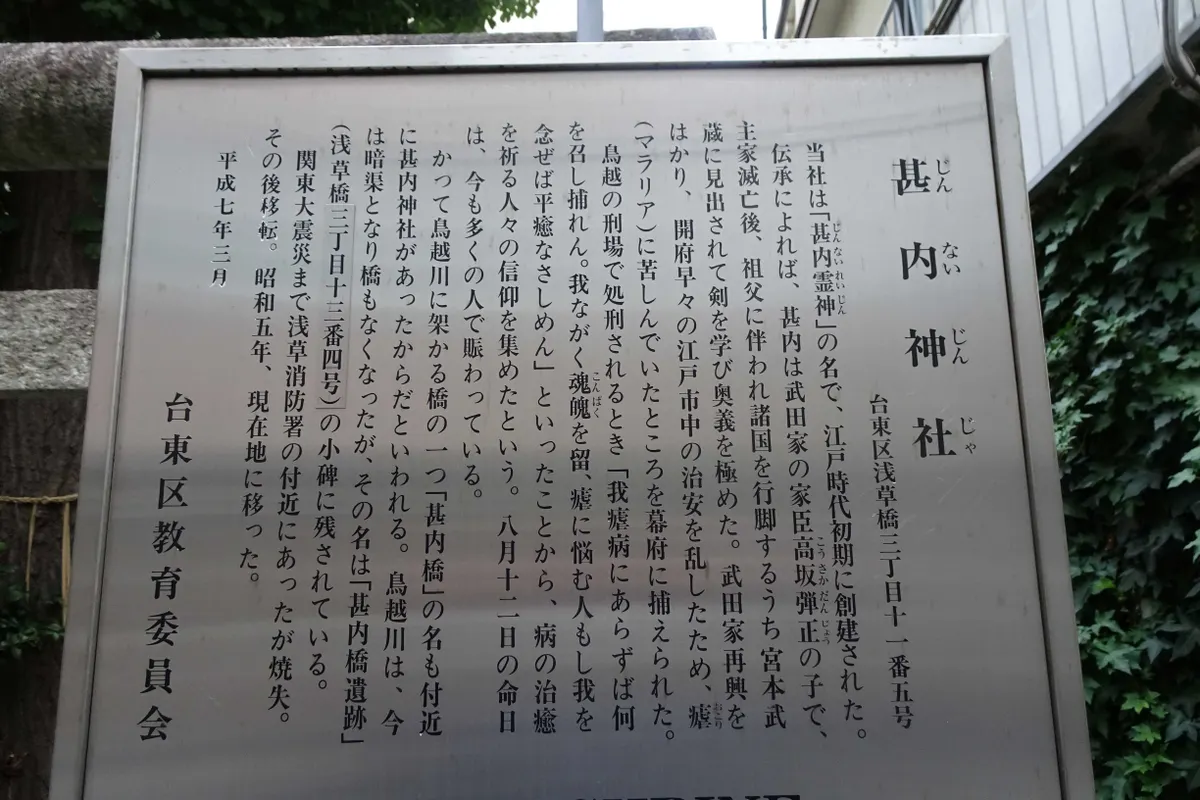 甚内神社
じんないじんじゃ
台東区浅草橋三丁目十一番五号
当社は「甚内霊神」の名で、江戸時代初期に創建された。
じんないれいじん
伝承によれば、甚内は武田家の家臣高坂弾正の子で、
こうさかだんじょう
主家滅亡後、祖父に伴われ諸国を行脚するうち宮本武
蔵に見出されて剣を学び奥義を極めた。武田家再興を
はかり、開府早々の江戸市中の治安を乱したため、瘧
おこり
(マラリア)に苦しんでいたところを幕府に捕えられた。
鳥越の刑場で処刑されるとき「我瘧病にあらずば何
を召し捕れん。我ながく魂魄を留、瘧に悩む人もし我を
こんぱく
念ぜば平癒なさしめん」といったことから、病の治癒
を祈る人々の信仰を集めたという。八月十二日の命日
は、今も多くの人で賑わっている。
かつて鳥越川に架かる橋の一つ「甚内橋」の名も付近
に甚内神社があったからだといわれる。鳥越川は、今
は暗渠となり橋もなくなったが、その名は「甚内橋遺跡」
(浅草橋三丁目十三番四号)の小碑に残されている。
関東大震災まで浅草消防署の付近にあったが焼失。
その後移転。昭和五年、現在地に移った。
平成七年三月
台東区教育委員会